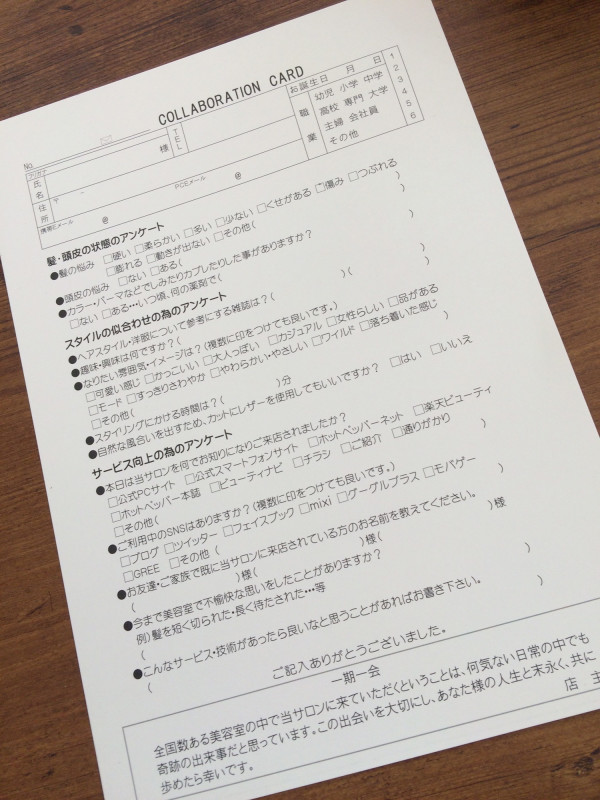 COLLABORATION CARD
No.
フリガナ
氏名
様
TEL
お誕生日 月 日
職業
幼児 小学 中学
高校 専門 大学
主婦 会社員
その他
1
2
3
4
5
6
住所
〒 -
携帯Eメール @
PCEメール @
髪・頭皮の状態のアンケート
●髪の悩み □硬い □柔らかい □多い □少ない □くせがある □傷み □つぶれる
□膨れる □動きが出ない □その他( )
●頭皮の悩み □ない □ある( )
●カラー・パーマなどでしみたりカブレたりした事がありますか?
□ない □ある・・・いつ頃、何の薬剤で( )
スタイルの似合わせの為のアンケート
●ヘアスタイル・洋服について参考にする雑誌は?( )( )
●趣味・興味は何ですか?( )
●なりたい雰囲気・イメージは?(複数に印をつけても良いです。)
□可愛い感じ □かっこいい □大人っぽい □カジュアル □女性らしい □品がある
□モード □すっきりさわやか □やわらかい・やさしい □ワイルド □落ち着いた感じ
□その他( )
●スタイリングにかける時間は?( )分
●自然な風合いを出すため、カットにレザーを使用してもいいですか? □はい □いいえ
サービス向上の為のアンケート
●本日は当サロンを何でお知りになりご来店されましたか?
□公式PCサイト □公式スマートフォンサイト □ホットペッパーネット □楽天ビューティ
□ホットペッパー本誌 □ビューティナビ □チラシ □ご紹介 □通りがかり
□その他( )
●ご利用中のSNSはありますか?(複数に印をつけても良いです。)
□ブログ □ツイッター □フェイスブック □mixi □グーグルプラス □モバゲー
□GREE □その他 ( )
●お友達・ご家族で既に当サロンに来店されている方のお名前を教えてください。
( )様( )様( )様
●今まで美容室で不愉快な思いをしたことがありますか?
例)髪を短く切られた・長く待たされた・・・等
( )
●こんなサービス・技術があったら良いなと思うことがあればお書き下さい。
( )
ご記入ありがとうございました。
一期一会
全国数ある美容室の中で当サロンに来ていただくということは、何気ない日常の中でも
奇跡の出来事だと思っています。この出会いを大切にし、あなた様の人生と末永く、共に
歩めたら幸いです。
店 主